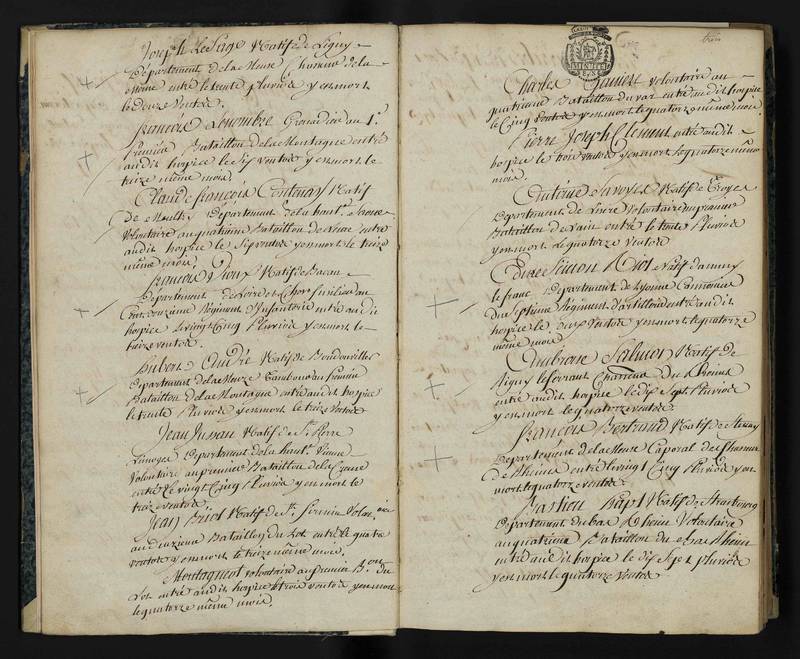 Joseph Lesage Natif de Ligny
Département de la Meuse chasseur de la
entré le trente Pluviôse y en mort
le douze Ventôse.
François Lenombre Grenadier au 1er
Premier Bataillon de la Montagne entré
audit hospice le Six ventôse y en mort le
treize même mois.
Claude françois Coutenay Natif
de Département de la haute Saone
Volontaire au quatrième Bataillon de entré
audit hospice le Sept ventôse y en mort le treize
même mois.
François Natif de
Département de Loire et Cher fusilier au
Cent douzième Régiment d'Infanterie entré audit
hospice le vingt Cinq Pluviôse y en mort le
treize ventôse.
Hubert André Natif de
Département de la Meuse Tambour au premier
Bataillon de la Montagne entré audit hospice
le trente Pluviôse y en mort le treize Ventôse
Jean Natif de St Pierre
Limoges Département de la haute Vienne
Volontaire au premier Bataillon de la Creuse
entré le vingt Cinq Pluviôse y en mort le
treize ventôse.
Jean Briol Natif de St. firmin Volontaire
au deuxième Bataillon du Lot entré le quatre
ventôse y en mort le treize même mois.
Montagnol volontaire au premier B.on du
Lot entré audit hospice le trois ventôse y en mort
le quatorze même mois.
trois
Charles Volontaire au
quatrième Bataillon du var entré audit hospice
le Cinq ventôse y en mort le quatorze même mois
Pierre Joseph Clement entré audit
hospice le trois ventôse y en mort le quatorze même
mois.
Antoine Savoyes Natif de Troyes
Département de Volontaire au premier
Bataillon de l'ain entré le trente Pluviôse
y en mort le quatorze Ventôse
Edmee Simon Natif d'
le franc Département de Lyonne Canonnier
du Septieme Régiment d'artillerie entré audit
hospice le deux Ventôse y en mort le quatorze
même mois
Ambroise Salmon Natif de
Vigny le ferrant Chasseur du Rheims
entré audit hospice le dix Sept Pluviôse
y en mort le quatorze ventôse.
François Bertrand Natif de Stenay
Département de la Meuse Caporal des Chasseurs
de Rheims entré le vingt Cinq Pluviôse y en
mort le quatorze ventôse.
Bastien Bapt Natif de Strasbourg
Département du bas Rhein Volontaire
au quatrième Bataillon du bas Rhein
entré audit hospice le dix Sept pluviôse
y en mort le quatorze Ventôse